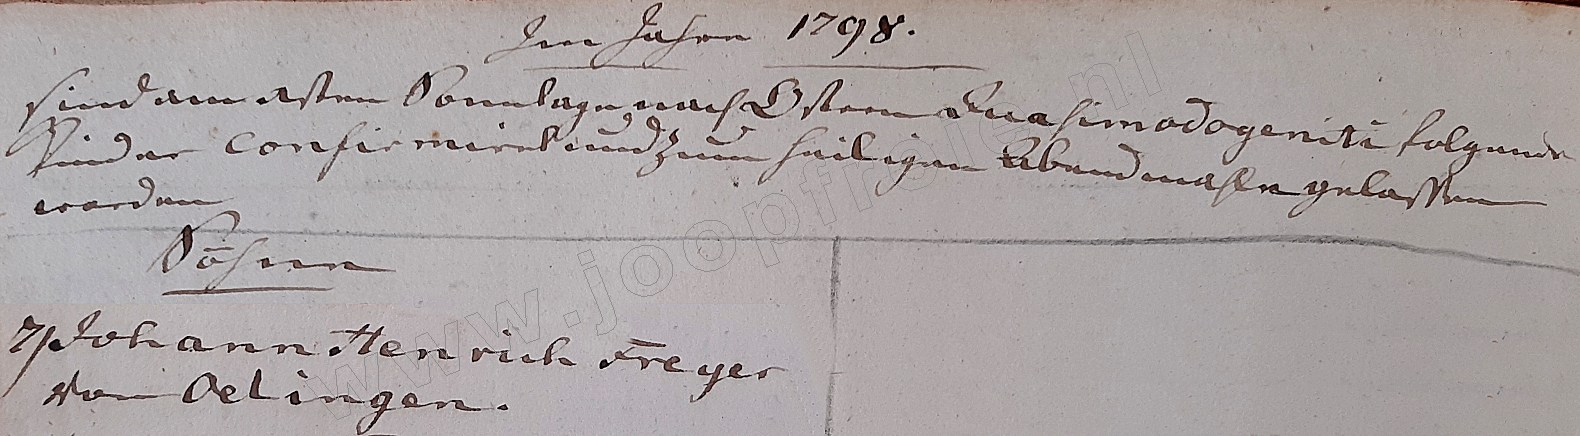 Im Jahre 1798.
sind am 1sten Sonntage nach Ostern Quasimodogeniti folgende
Kinder confirmiret und zum heiligen Abendmahle gelassen
worden
Söhne
7) Johann Henrich Freyer
von Oelingen.
www.joopfrigje.nl